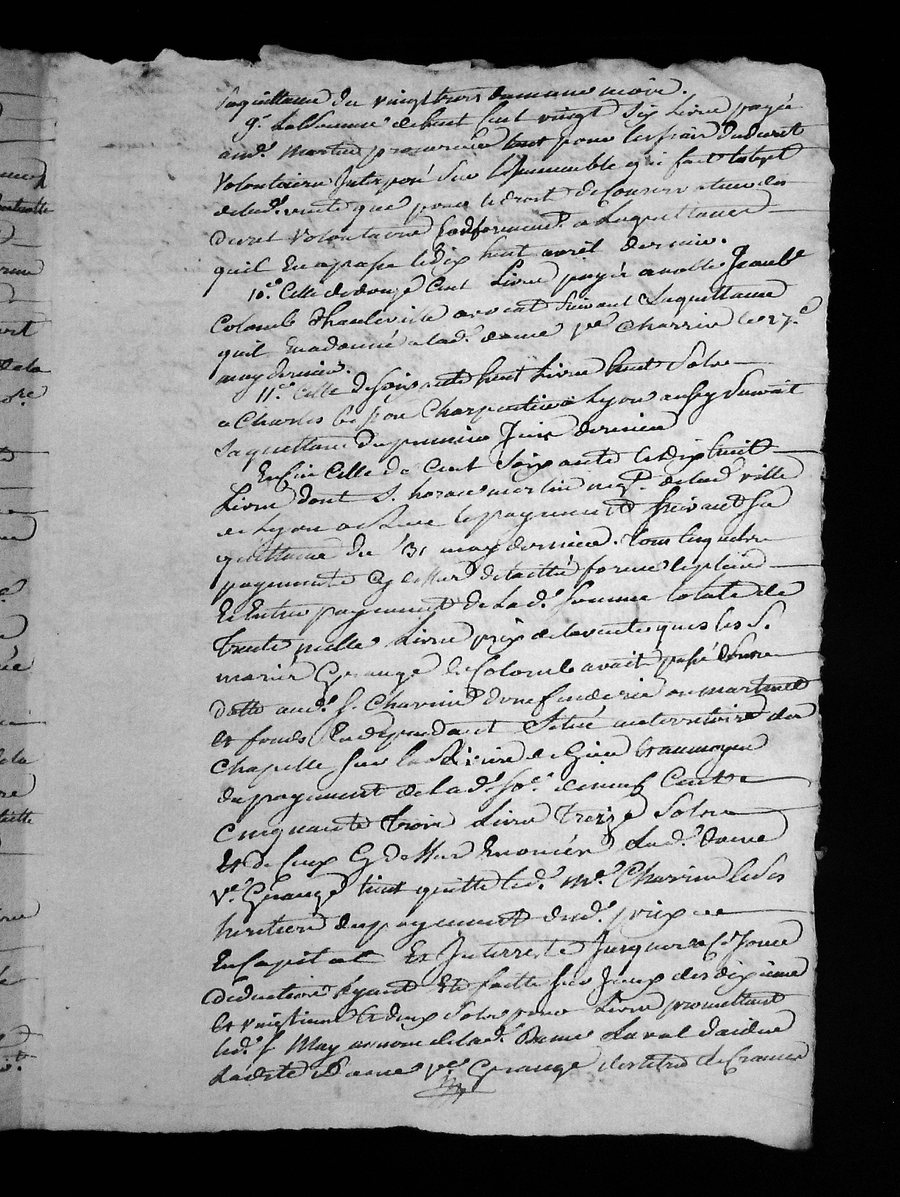 Saquittance du vingt trois du mane moire.
9.º La Somme de huit Cent vingt Six Livre payée
aud.^t Martin procureur tant pour les frais du decret
Volontaire Interposé Sur L'Immeuble qui fait lobjet
de lad.^e vente que pour le droit de Conservation du
decret Volontaire Conformem.^t a La quittance
quil En a passe le dix huit avril dernier.
10.º Celle de douze Cent Livre payée a noble Jean B
Colomb d'hauteville avocat Suivant La quittance
quil En a donné a lad.^e dame v.^e Charrin le 27.^e
may dernier.
11.º Celle de Soixante huit Livre huit Sols
a Charles Charpentier a Lyon aussy Suivant
Sa quittance du premier Juin dernier
Enfin Celle de Cent Soixante et dix huit
Livre dont S. horace merlin neg.^t de lad.^e ville
de Lyon a le payement Suivant Sa
quittance du 31 may dernier. Tous lesquels
payements Cy dessus detaillé forme le plein
Et Entier payement de Lad.^e Somme totale de
Trente mille Livre prix de la vente que les S.
mariés Grange et Colomb avait passé
aud.^t S. Charrin d'une fonderie ou martinet
et fonds En dependant Situé au territoire de
Chapelle Sur La Riviere de Gier Et au moyen
du payement de Lad.^e So.^e de neuf Cents
Cinquante trois Livre Treize Sols
Et de Ceux Cy dessus Enoncé Lad.^e Dame
V.^e Grange tient quitte led.^t m.^r Charrin et les
heritiers du payement dud.^t prix
En Capital Et Interrests Jusqu'a Ce Jour
deduction Ayant Eté faite Sur Iceux des dixieme
Et vingtieme et deux Sols pour Livre promettant
led.^t S. May au nom de lad.^e Dame Laval
Ladite Dame v.^e Grange